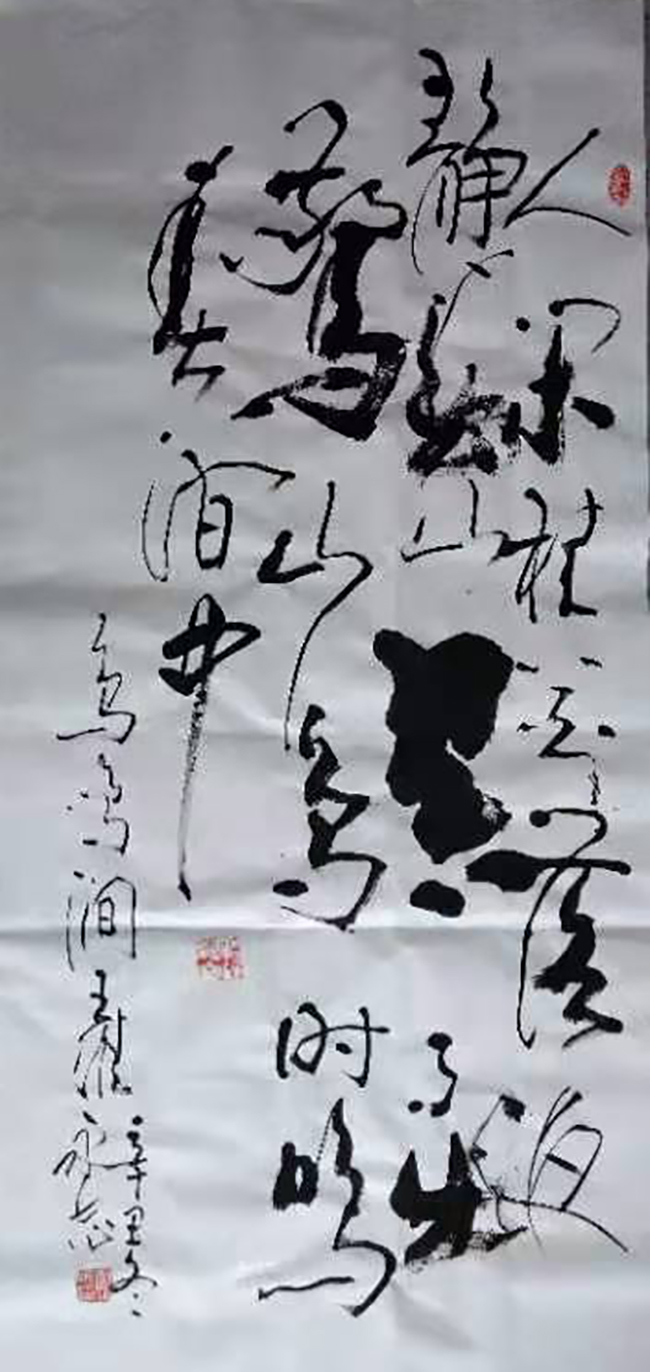 人闲桂花落夜
静春山空月出
驚山鸟时鸣
春涧中
鸟鸣涧 王维
辛丑冬